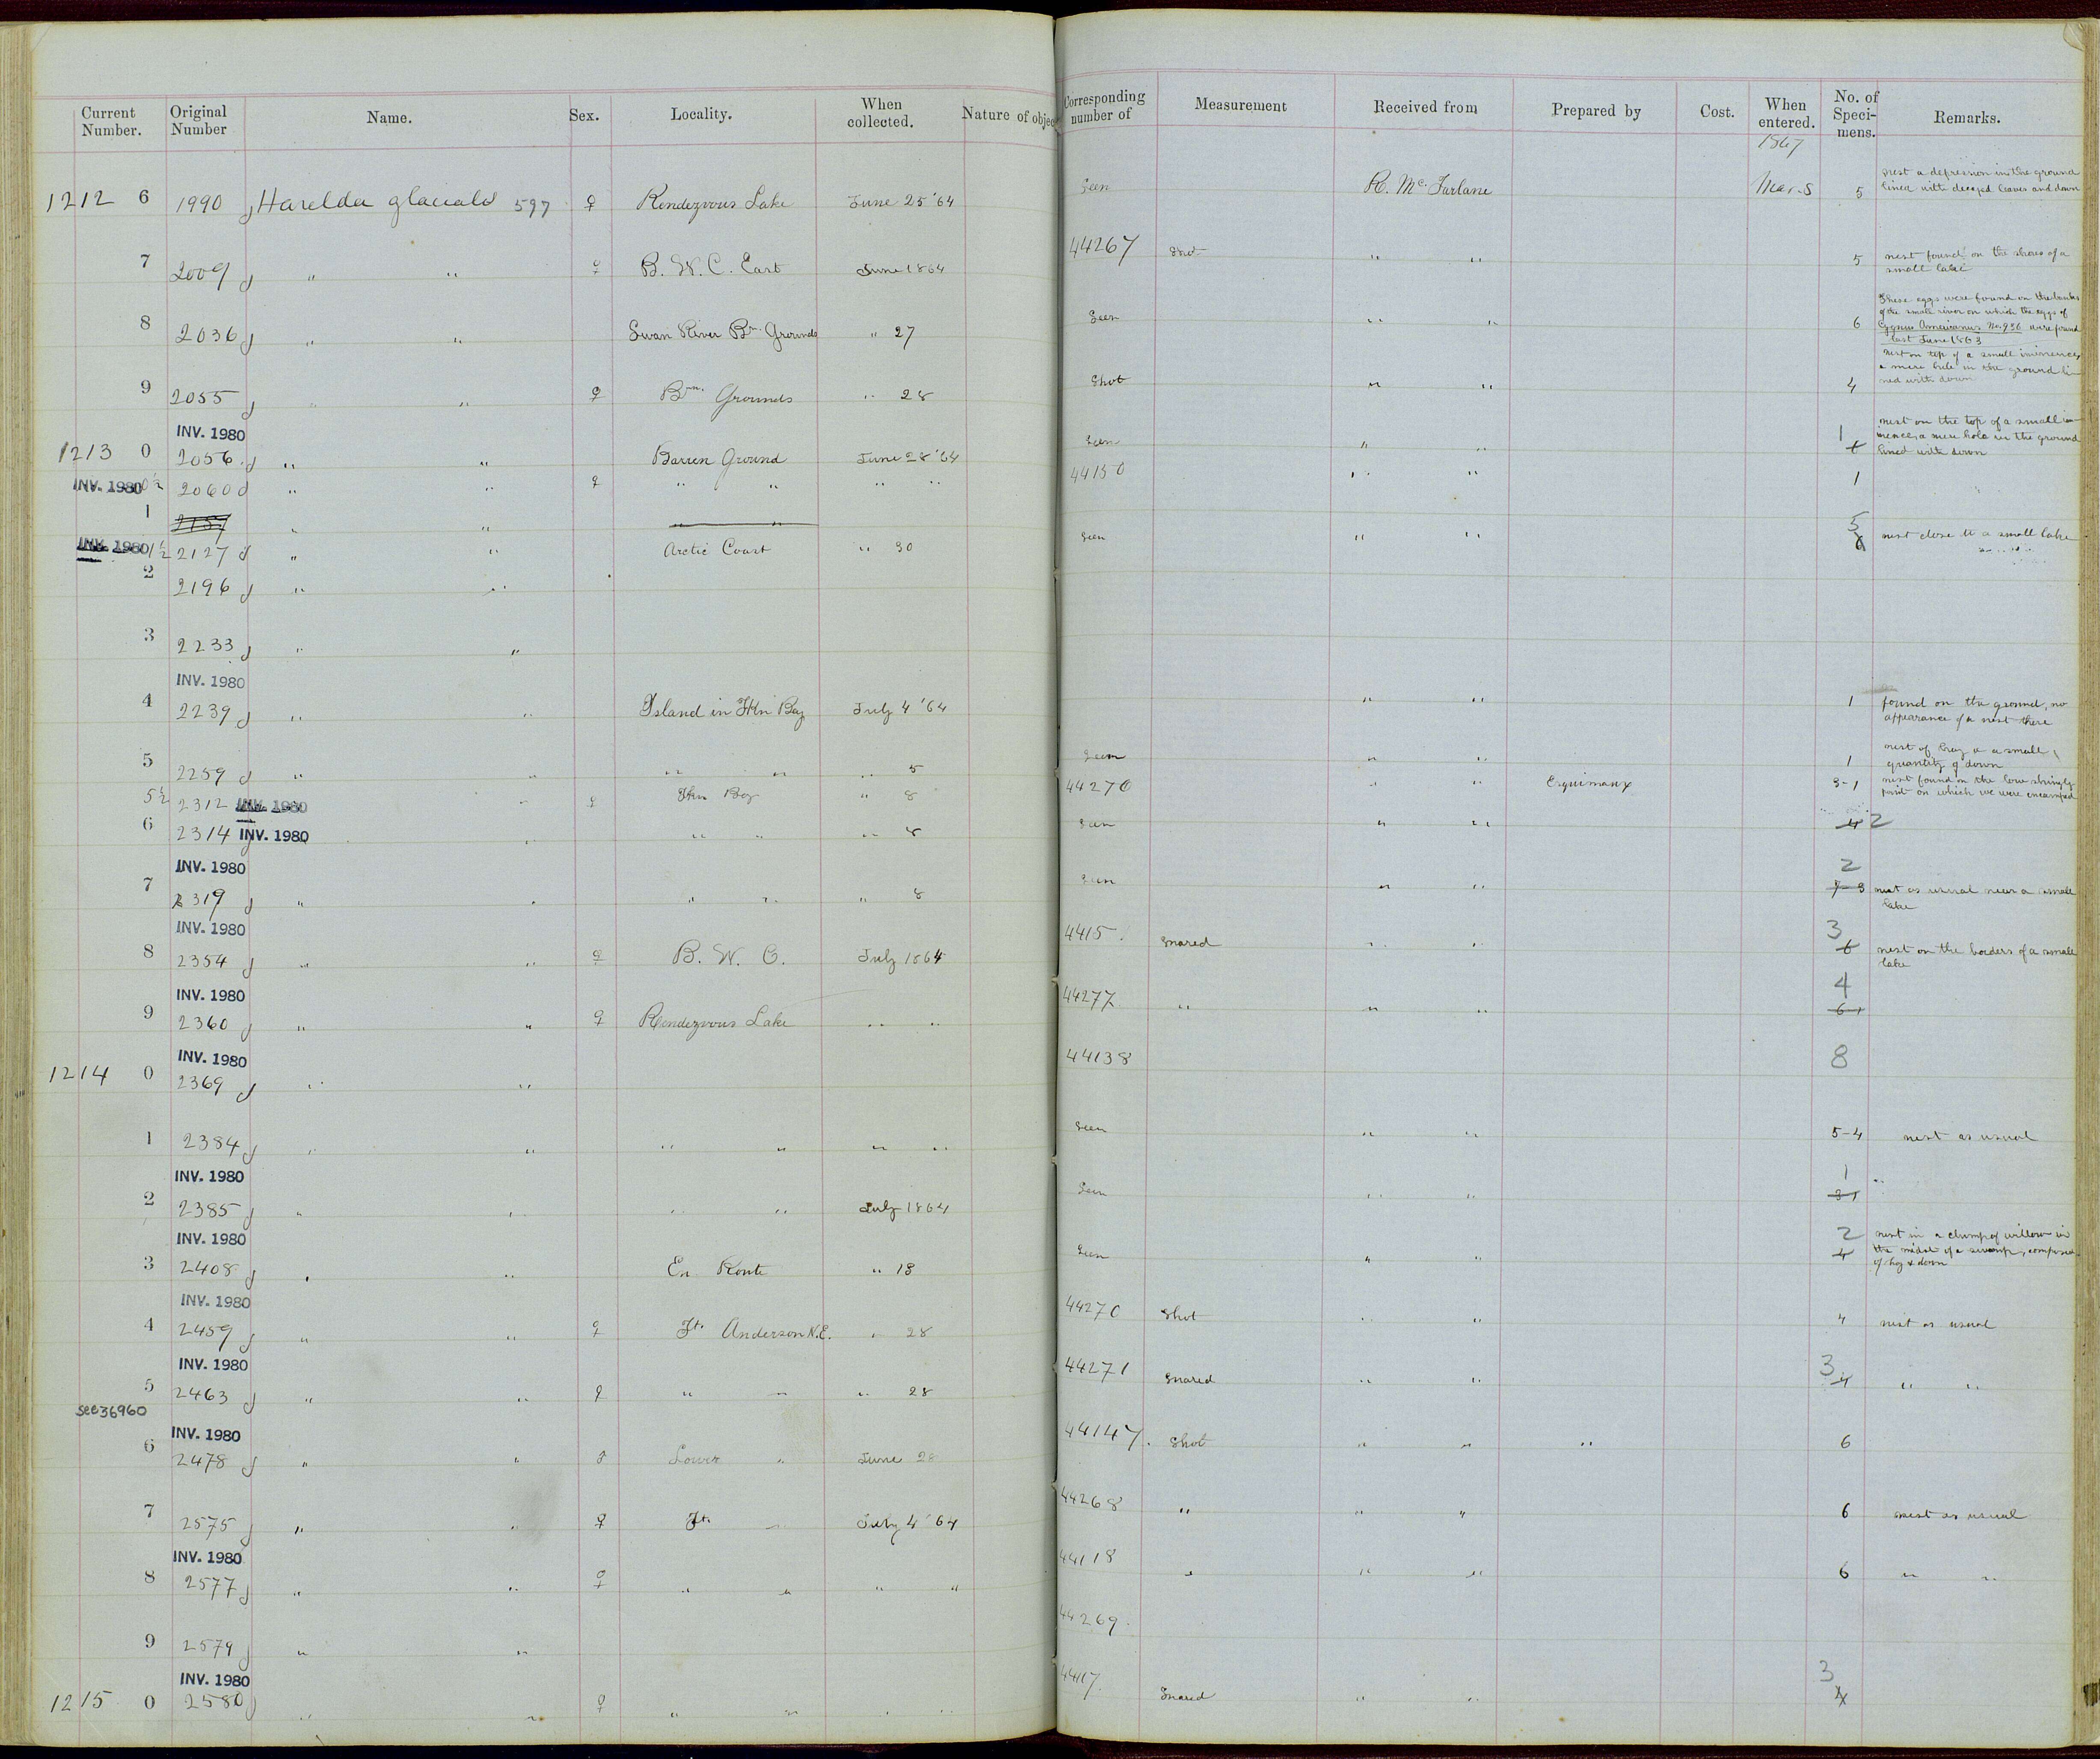 Current Number. Original Number Name. Sex. Locality. When collected. Nature of objec
Corresponding number of Measurement Received from Prepared by Cost. When entered. No. of Speci-mens. Remarks.
1867
1212 6 1990 Harelda glacialis 597 ♀ Rendezvous Lake June 25 '64 Seen R. McFarlane Mar. 5 nest a depression in the ground
lined with decayed leaves and down
7 2009 " " ♀ B. W. C. East June 1864 44267 Shot " " 5 nest found on the shores of a
small lake
8 2036 " " Swan River Bn. Grounds " 27 Seen " " 6 These eggs were found on the banks
of the small river on which the eggs of
Cygnus Americanus No. 936 were found
last June 1863
9 2055 " " ♀ Brn. Grounds " 28 Shot " " 4 nest on top of a small eminence,
a mere hole in the ground li-
ned with down
INV. 1980
1213 0 2056 " " Barren Ground June 28 '64 Seen " " 1 6 nest on the top of a small em-
inence, a mere hole in the ground
lined with down
INV. 1980 0½ 2060 " " ♀ " " " " 44150 " " 1
1 2157 " " " "
INV. 1980 1½ 2127 " " Arctic Coast " 30 Seen " " 5 6 nest close to a small lake
2 2196 " "
3 2233 " "
INV. 1980
4 2239 " " Island in Fkn Bay July 4 '64 " " 1 found on the ground, no
appearance of a nest there
5 2259 " " " " " 5 Seen " " 1 nest of hay & a small
quantity of down
5½ 2312 INV. 1980 " ♀ Fkn Bay " 8 44276 " " Esquimaux 3-1 nest found on the low shingly
point on which we were encamped
6 2314 INV. 1980 " " " " 8 Seen " " 4 2
INV. 1980
7 2319 " " " " " 8 Seen " " 2 nest as usual near a small
lake
INV. 1980
8 2354 " " ♀ B. W. C. July 1864 4415 Snared " " 3 6 nest on the borders of a small
lake
INV. 1980
9 2360 " " ♀ Rendezvous Lake " " 44277 " " " 4 6-1
INV. 1980
1214 0 2369 " " 44138 8
1 2384 " " " " " " Seen " " 5-4 nest as usual
INV. 1980
2 2385 " " " " July 1864 Seen " " 1 3-1 "
INV. 1980
3 2408 " " En Route " 18 Seen " " 2 4 nest in a clump of willows in
the midst of a swamp, composed
of hay & down
INV. 1980
4 2459 " " ♀ Ft. Anderson N.E. " 28 44270 Shot " " 4 nest as usual
INV. 1980
5 2463 " " ♀ " " " 28 44271 Snared " " 3 4 " "
see 36960
INV. 1980
6 2478 " " Lower " June 28 44147. Shot " " " 6
7 2575 " " ♀ Ft. " July 4 '64 44268 " " " 6 nest as usual
INV. 1980
8 2577 " " ♀ " " " " 44118 " " " 6 " "
9 2579 " " 44269.
INV. 1980
1215 0 2580 " " ♀ " " " " 4417. Snared " " 3 4